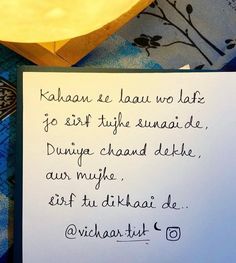 Kahaan se laau wo lafz
jo sirf tujhe sunaai de,
Duniya chaand dekhe,
aur mujhe,
sirf tu dikhaai de..
@vichaar.tist